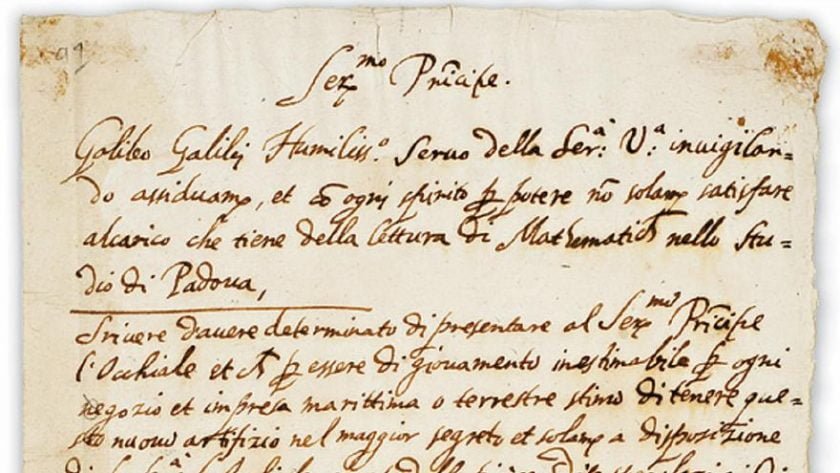 Ser.mo Prīcipe.
Galileo Galilej Humiliss.o Seruo della Ser.a V.a inuigilan=
do assiduam.e, et cō ogni spirito p̱ potere nō solam.e satisfare
alcarico che tiene della lettura di Mathematich nello Stu=
dio di Padoua,
Scriuere dauere determinato di presentare al Ser.mo Prīcipe
l'Occhiale et ch p̱ essere di giouamento inestimabile p̱ ogni
negozio et impresa marittima o terrestre stimo di tenere que=
sto nuouo artifizio nel maggior segreto et solam.e a disposizione